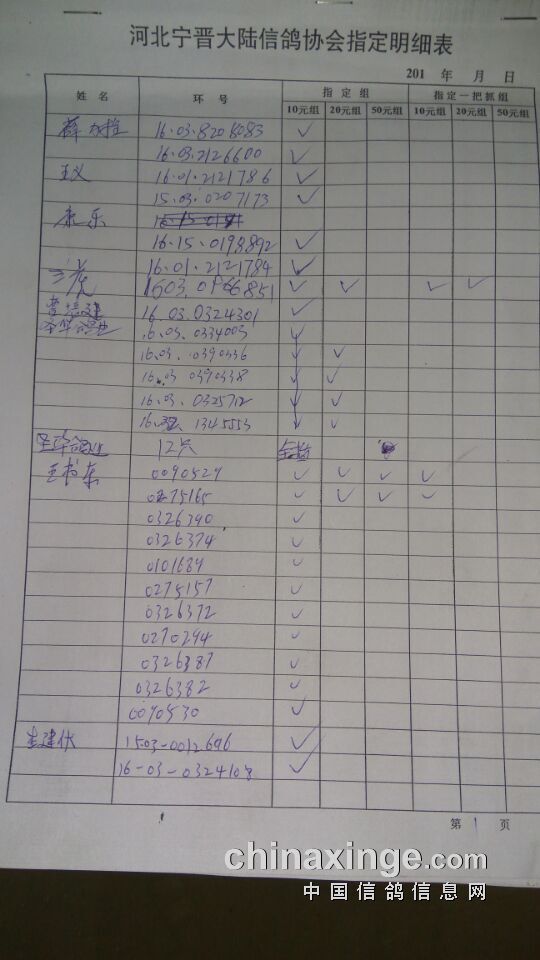 河北宁晋大陆信鸽协会指定明细表
201 年 月 日
姓名 环号 指定组 指定一把抓组
10元组 20元组 50元组 10元组 20元组 50元组
16.03.8208083 ✓
16.03.2126600 ✓
王义 16.01.2121786 ✓
15.03.0207173 ✓
康乐
16.15.0198892 ✓
16.01.2121784 ✓
1603.0966851 ✓ ✓ ✓ ✓
16.03.0324301 ✓
16.03.0334003 ✓
16.03.0390336 ✓ ✓
16.03 0390338 ✓ ✓
16.03.0325712 ✓ ✓
1345553 ✓ ✓
12只 全指
王书东 0090529 ✓ ✓ ✓ ✓
0275165 ✓ ✓ ✓ ✓
0326390 ✓
0326374 ✓
0101689 ✓
0275157 ✓
0326372 ✓
0270294 ✓
0326387 ✓
0326382 ✓
0090530 ✓
1503-0012696 ✓
16-03-0324108 ✓
第 1 页
chinaxinge.com
中国信鸽信息网